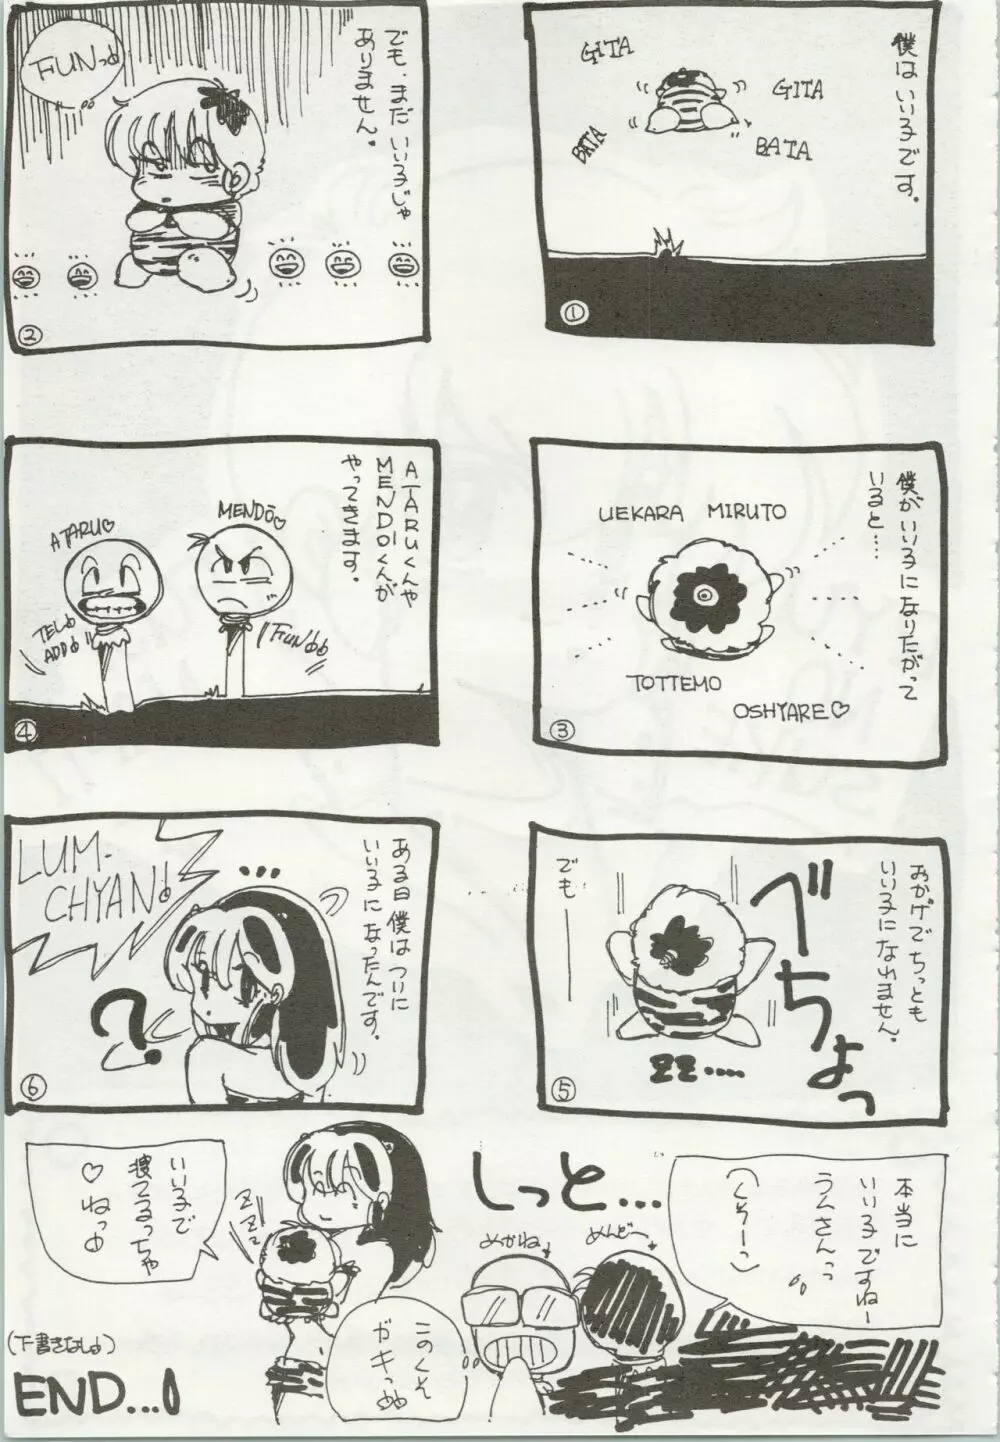 僕はいい子です。
GITA
GITA
BATA
BATA
①
でも、まだいい子じゃ
ありません。
FUNっ
②
僕がいい子になりたがって
いると……
UEKARA MIRUTO
TOTTEMO
OSHYARE♡
③
ATARUくんや
MENDOくんが
やってきます。
ATARU♡
MENDŌ♡
TEL
ADD
FUN
④
おかげでちっとも
いい子になれません。
でも――
べちょっ
ZZ....
⑤
ある日僕はついに
いい子になったんです。
LUM-
CHYAN
...
?
⑥
本当に
いい子ですねー
ラムさんっ
(くそーっ)
しっと…
めんどー
めがね
このくそ
ガキっ
ZZZ
いい子で
寝てるっちゃ
♡ねっ
(下書きなし)
END...